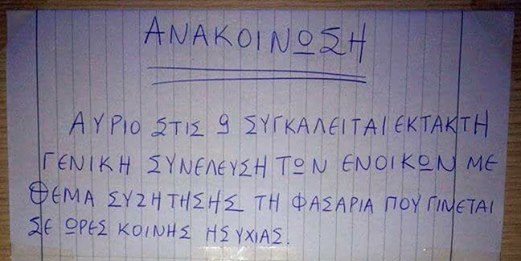 ΑΝΑΚΟΙΝΩΣΗ
ΑΥΡΙΟ ΣΤΙΣ 9 ΣΥΓΚΑΛΕΙΤΑΙ ΕΚΤΑΚΤΗ
ΓΕΝΙΚΗ ΣΥΝΕΛΕΥΣΗ ΤΩΝ ΕΝΟΙΚΩΝ ΜΕ
ΘΕΜΑ ΣΥΖΗΤΗΣΗΣ ΤΗ ΦΑΣΑΡΙΑ ΠΟΥ ΓΙΝΕΤΑΙ
ΣΕ ΩΡΕΣ ΚΟΙΝΗΣ ΗΣΥΧΙΑΣ.